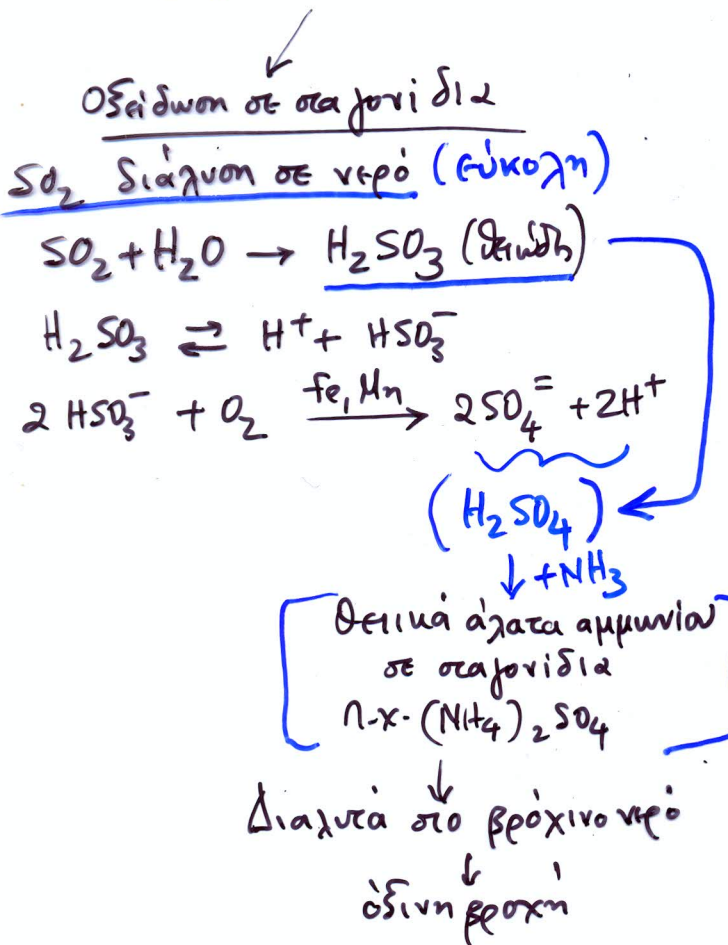 Οξείδωση σε σταγονίδια
SO₂ διάλυση σε νερό (εύκολη)
SO₂ + H₂O → H₂SO₃ (θειώδη)
H₂SO₃ ⇄ H⁺ + HSO₃⁻
2 HSO₃⁻ + O₂ Fe, Mn → 2SO₄⁼ + 2H⁺
(H₂SO₄)
↓ +NH₃
θειικά άλατα αμμωνίου
σε σταγονίδια
π.χ. (NH₄)₂SO₄
↓
Διαλυτά στο βρόχινο νερό
↓
όξινη βροχή